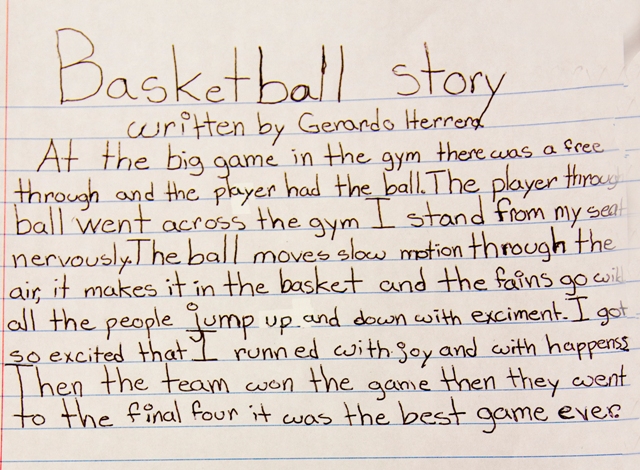 Basketball story
written by Gerardo Herrera
At the big game in the gym there was a free
through and the player had the ball. The player throug
ball went across the gym I stand from my seat
nervously. The ball moves slow motion through the
air, it makes it in the basket and the fains go wil
all the people jump up and down with exciment. I got
so excited that I runned with joy and with happenss
Then the team won the game then they went
to the final four it was the best game ever.